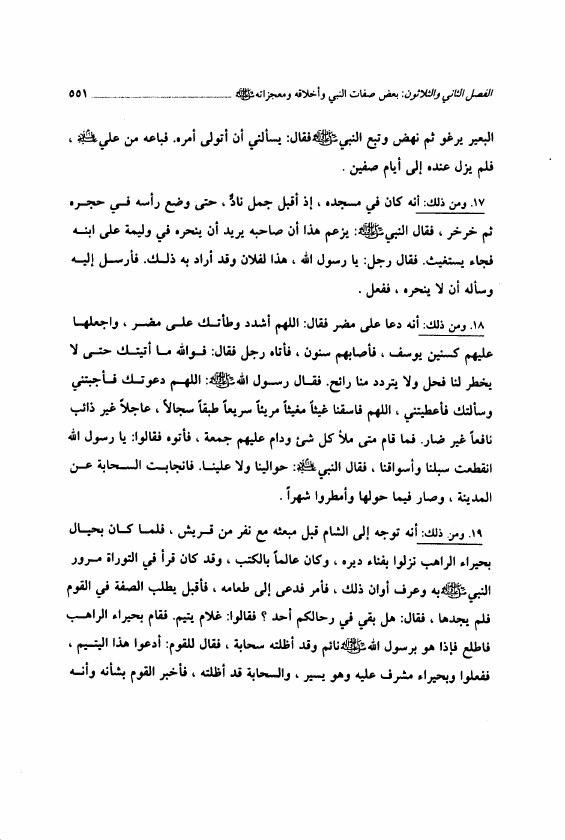 الفصل الثاني والثلاثون: بعض صفات النبي وأخلاقه ومعجزاته ﷺ ٥٥١
البعير يرغو ثم نهض وتبع النبي ﷺ فقال: يسألني أن أتولى أمره. فباعه من علي ؑ ،
فلم يزل عنده إلى أيام صفين .
١٧. ومن ذلك: أنه كان في مسجده ، إذ أقبل جمل نادٌّ ، حتى وضع رأسه فـي حجـره
ثم خرخر ، فقال النبي ﷺ: يزعم هذا أن صاحبه يريد أن ينحره في وليمة على ابنـه
فجاء يستغيث. فقال رجل: يا رسول الله ، هذا لفلان وقد أراد به ذلـك. فأرسـل إليـه
وسأله أن لا ينحره ، ففعل .
١٨. ومن ذلك: أنه دعا على مضر فقال: اللهم أشدد وطأتـك علـى مضـر ، واجعلهـا
عليهم كسنين يوسف ، فأصابهم سنون ، فأتاه رجل فقال: فـوالله مـا أتيتـك حتـى لا
يخطر لنا فحل ولا يتردد منا رائح. فقـال رسـول الله ﷺ: اللهـم دعوتـك فـأجبتني
وسألتك فأعطيتني ، اللهم فاسقنا غيثاً مغيثاً مريئاً سريعاً طبقاً سجالاً ، عاجلاً غير ذائب
نافعاً غير ضار. فما قام متى ملأ كل شئ ودام عليهم جمعة ، فأتوه فقالوا: يا رسول الله
انقطعت سبلنا وأسواقنا ، فقال النبي ﷺ: حوالينا ولا علينـا. فانجابـت السـحابة عـن
المدينة ، وصار فيما حولها وأمطروا شهراً .
١٩. ومن ذلك: أنه توجه إلى الشام قبل مبعثه مع نفر من قريش ، فلمـا كـان بحيـال
بحيراء الراهب نزلوا بفناء ديره ، وكان عالماً بالكتب ، وقد كان قرأ في التوراة مـرور
النبي ﷺ به وعرف أوان ذلك ، فأمر فدعى إلى طعامه ، فأقبل يطلب الصفة في القوم
فلم يجدها ، فقال: هل بقي في رحالكم أحد ؟ فقالوا: غلام يتيم. فقام بحيراء الراهـب
فاطلع فإذا هو برسول الله ﷺ نائم وقد أظلته سحابة ، فقال للقوم: أدعوا هذا اليتـيم ،
ففعلوا وبحيراء مشرف عليه وهو يسير ، والسحابة قد أظلته ، فأخبر القوم بشأنه وأنـه